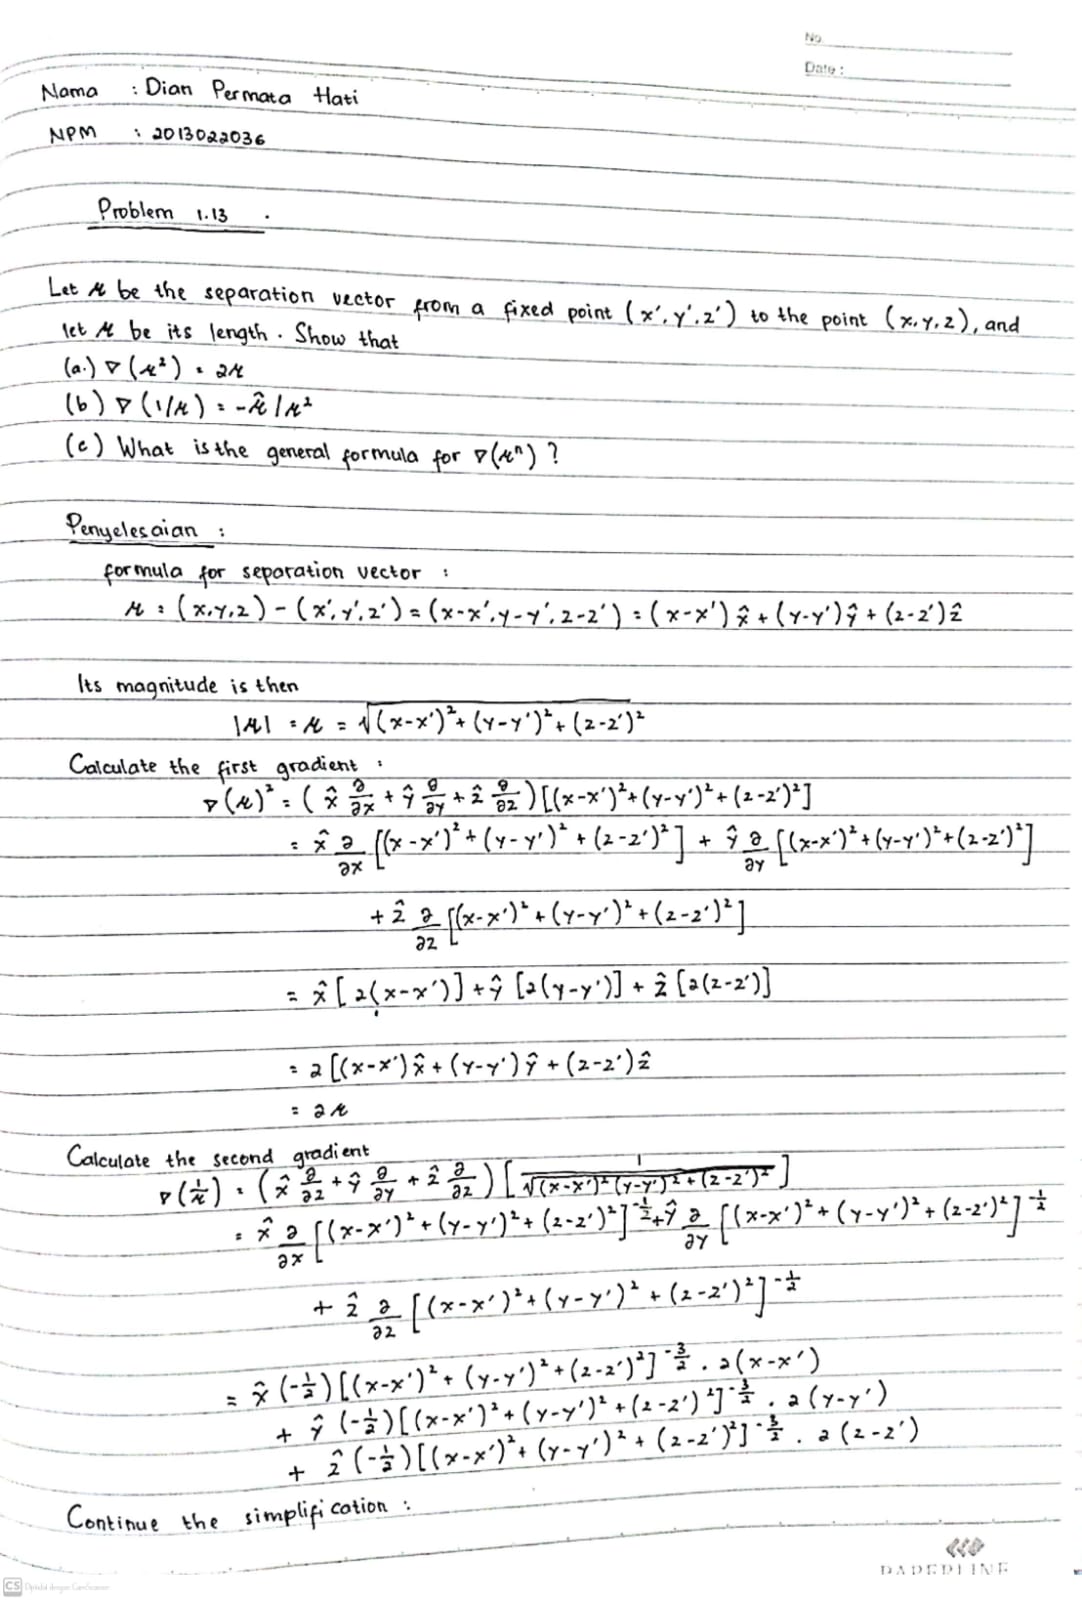 No.
Date :
Nama : Dian Permata Hati
NPM : 2013022036
Problem 1.13
Let 𝓇 be the separation vector from a fixed point (x', y', z') to the point (x, y, z), and
let 𝓇 be its length. Show that
(a.) ∇(𝓇²) = 2𝓇
(b) ∇(1/𝓇) = -𝓇̂/𝓇²
(c) What is the general formula for ∇(𝓇ⁿ) ?
Penyelesaian :
formula for separation vector :
𝓇 = (x, y, z) - (x', y', z') = (x-x', y-y', z-z') = (x-x') x̂ + (y-y') ŷ + (z-z') ẑ
Its magnitude is then
|𝓇| = 𝓇 = √(x-x')² + (y-y')² + (z-z')²
Calculate the first gradient :
∇(𝓇)² = (x̂ ∂/∂x + ŷ ∂/∂y + ẑ ∂/∂z) [(x-x')² + (y-y')² + (z-z')²]
= x̂ ∂/∂x [(x-x')² + (y-y')² + (z-z')²] + ŷ ∂/∂y [(x-x')² + (y-y')² + (z-z')²]
+ ẑ ∂/∂z [(x-x')² + (y-y')² + (z-z')²]
= x̂ [2(x-x')] + ŷ [2(y-y')] + ẑ [2(z-z')]
= 2 [(x-x') x̂ + (y-y') ŷ + (z-z') ẑ
= 2𝓇
Calculate the second gradient
∇(1/𝓇) = (x̂ ∂/∂z + ŷ ∂/∂y + ẑ ∂/∂z) [1/√(x-x')² (y-y')² + (z-z')²]
= x̂ ∂/∂x [(x-x')² + (y-y')² + (z-z')²]^-1/2 + ŷ ∂/∂y [(x-x')² + (y-y')² + (z-z')²]^-1/2
+ ẑ ∂/∂z [(x-x')² + (y-y')² + (z-z')²]^-1/2
= x̂ (-1/2) [(x-x')² + (y-y')² + (z-z')²]^-3/2 . 2(x-x')
+ ŷ (-1/2) [(x-x')² + (y-y')² + (z-z')²]^-3/2 . 2(y-y')
+ ẑ (-1/2) [(x-x')² + (y-y')² + (z-z')²]^-3/2 . 2(z-z')
Continue the simplification :
PAPERLINE
CS Dipindai dengan CamScanner